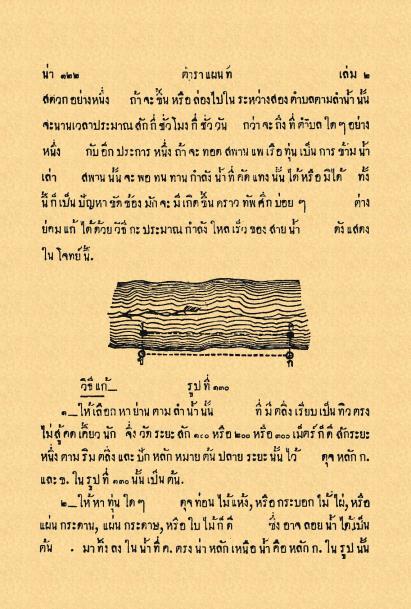 น่า ๑๒๒ ตำราแผนที่ เล่ม ๒
สดวกอย่างหนึ่ง ถ้าจะขึ้นหรือล่องไปใน ระหว่างสองตำบลตามลำน้ำนั้น
จะนานเวลาประมาณสักกี่ชั่วโมงกี่ชั่ววัน กว่าจะถึงที่ตำบลใดๆอย่าง
หนึ่ง กับอีกประการหนึ่งถ้าจะทอดสพานแพเรือทุ่นเป็นการข้ามน้ำ
เล่า สพานนั้นจะพอทนทานกำลังน้ำที่คัดแทงนั้นได้หรือมิได้ ทั้ง
นี้ก็เป็นปัญหาขัดข้องมักจะมีเกิดขึ้นคราวทัพศึกบ่อยๆ ต่าง
ย่อมแก้ได้ด้วยวิธีกะประมาณกำลังไหลเร็วของสายน้ำ ดังแสดง
ในโจทย์นี้.
ข ก
วิธีแก้_ รูปที่ ๑๓๐
๑_ให้เลือกหาย่านตามลำน้ำนั้น ที่มีตลิ่งเรียบเป็นทิวตรง
ไม่สู้คดเคี้ยวนัก จึ่งวัดระยะสัก ๑๕๐ หรือ ๒๐๐ หรือ ๓๐๐ เม็ตร์ก็ดีสักระยะ
หนึ่งตามริมตลิ่งและปักหลักหมายต้นปลายระยะนั้นไว้ ดุจหลัก ก.
และ ข. ในรูปที่ ๑๓๐ นั้นเป็นต้น.
๒_ให้หาทุ่นใดๆ ดุจท่อนไม้แห้ง, หรือกระบอกไม้ไผ่, หรือ
แผ่นกระดาน, แผ่นกระดาษ, หรือใบไม้ก็ดี ซึ่งอาจลอยน้ำได้เป็น
ต้น . มาทิ้งลงในน้ำที่ ค. ตรงน่าหลักเหนือน้ำคือหลัก ก. ในรูปนั้น